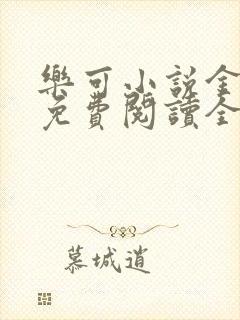 樂可小說全
免費閱讀全
慕城逍